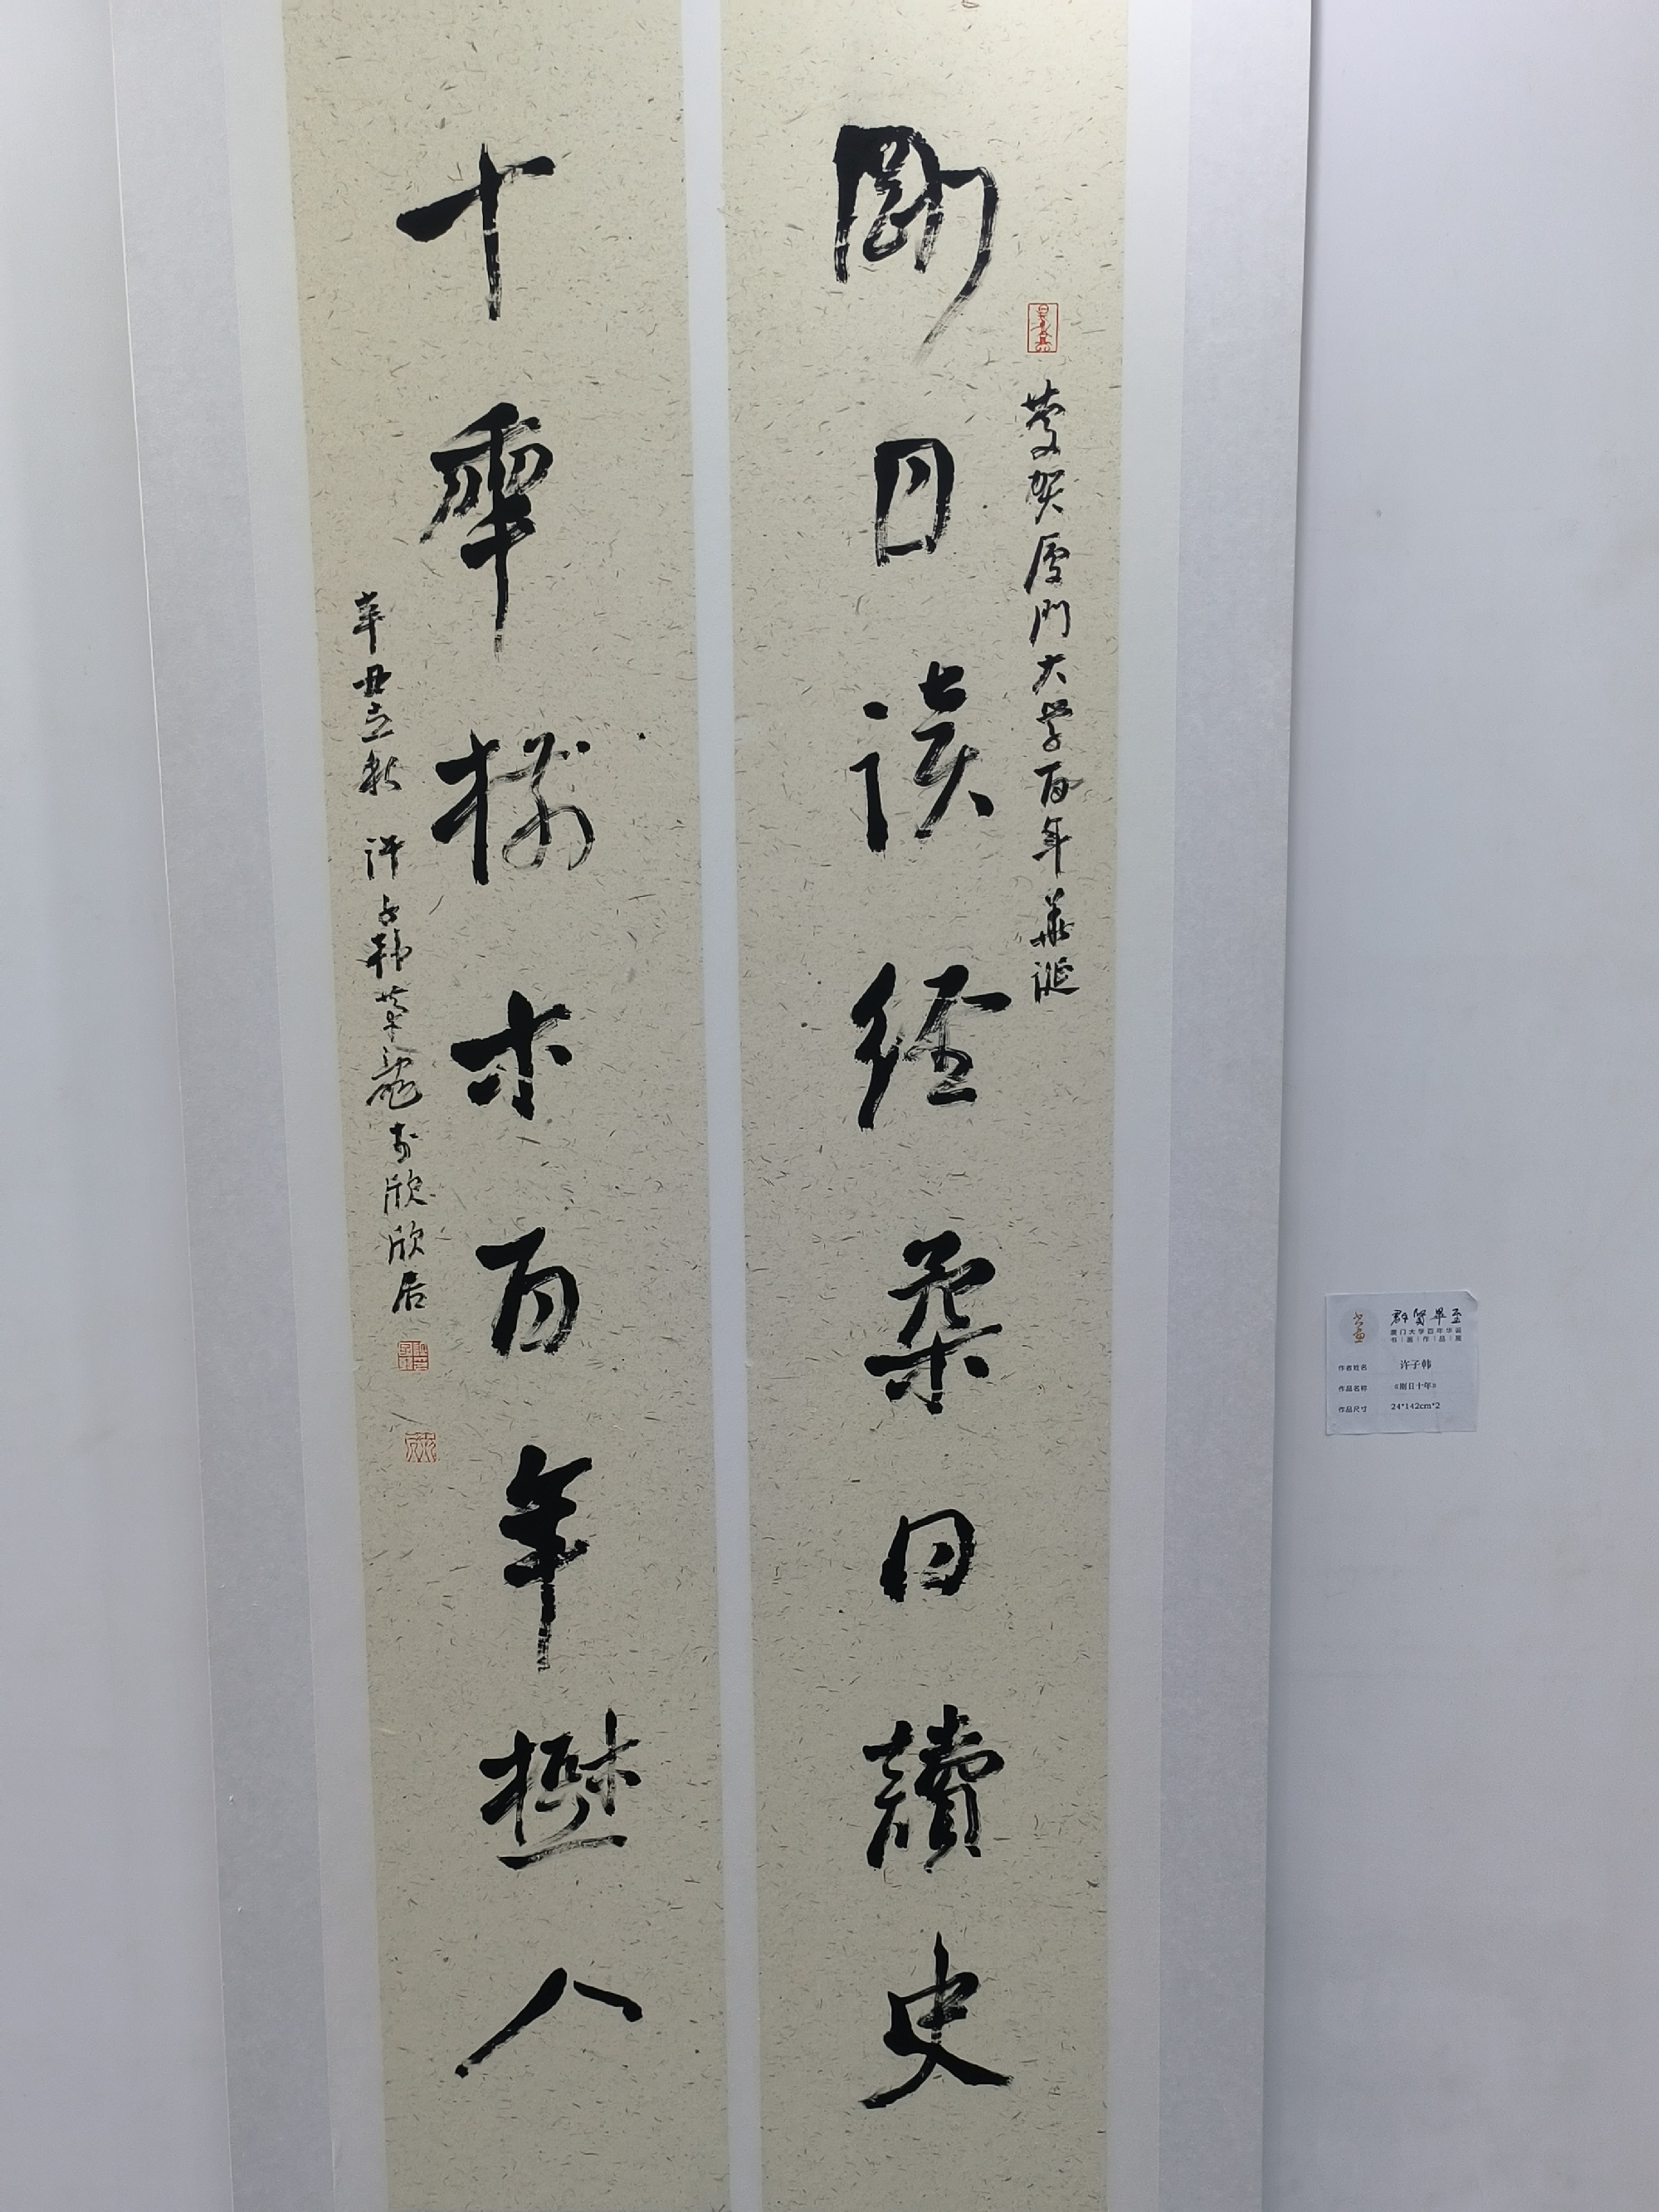 慶贺厦門大学百年華诞
剛日读经柔日讀史
十年樹木百年樹人
辛丑立秋 许子韩 欣欣居
書画
群賢畢至
厦门大学百年华诞
书|画|作|品|展
作者姓名 许子韩
作品名称 《刚日十年》
作品尺寸 24*142cm*2